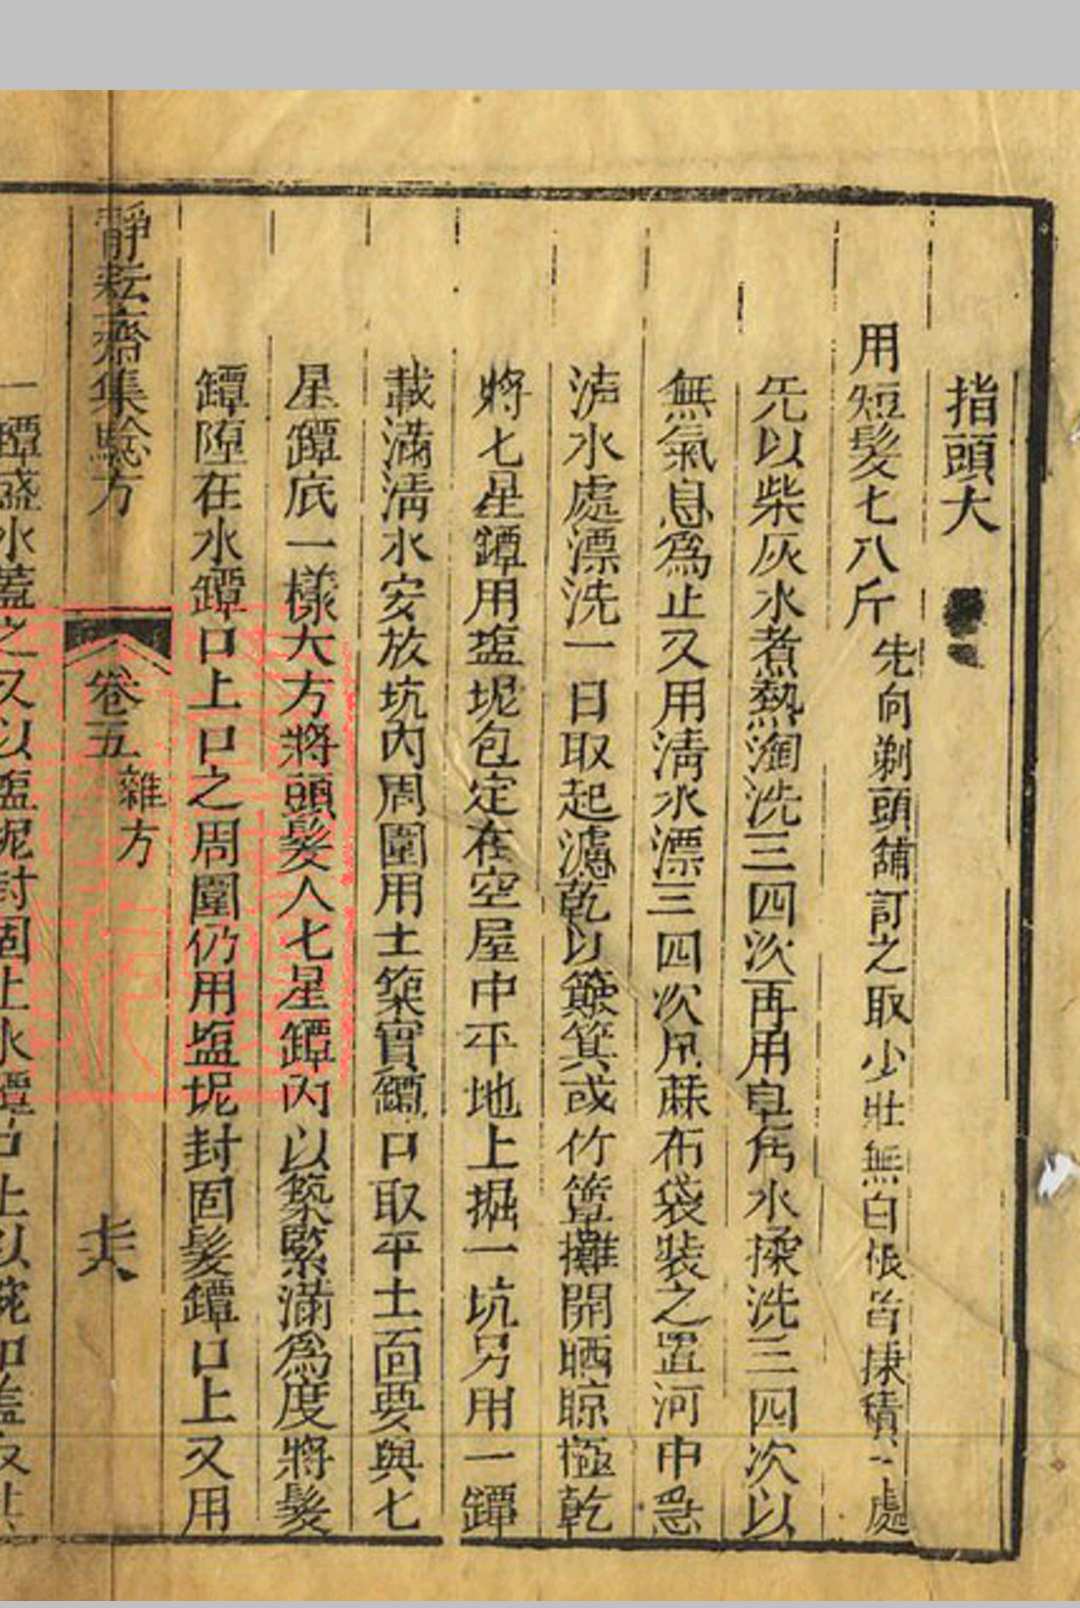 指頭大
用短髮七八斤 先向剃頭舖訂之取少壯無白
先以柴灰水煮熱淘洗三四次再用皂角水揉洗三四次以
無氣息為止又用清水漂三四次用蔴布袋裝之置河中急
浐水處漂洗一日取起濾乾以簸箕或竹簟攤開晒晾極乾
將七星罈用塩坭包定在空屋中平地上掘一坑另用一罈
載滿清水安放坑內周圍用土築實罈口取平土面要與七
星罈底一樣大方將頭髮入七星罈內以築緊滿為度將髮
罈陻在水罈口上口之周圍仍用塩坭封固髮罈口上又用
靜耘齋集驗方 卷五 雜方
一罈盛水蓋之又以塩坭封固上水罈口上以